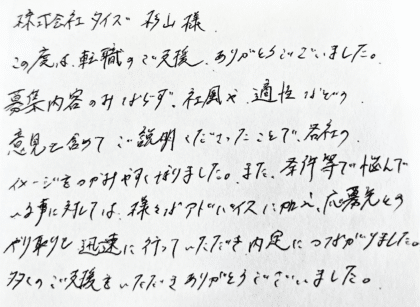 株式会社タイズ 杉山様
この度は、転職のご支援、ありがとうございました。
募集内容のみならず、社風や、適性などの
意見も含めて ご説明くださったことで、各社の
イメージをつかみやすくなりました。また、条件等で悩んで
いる事に対しては、様々なアドバイスに加え、応募先との
やり取りも 迅速に行っていただき、内定につながりました。
多くのご支援をいただき ありがとうございました。